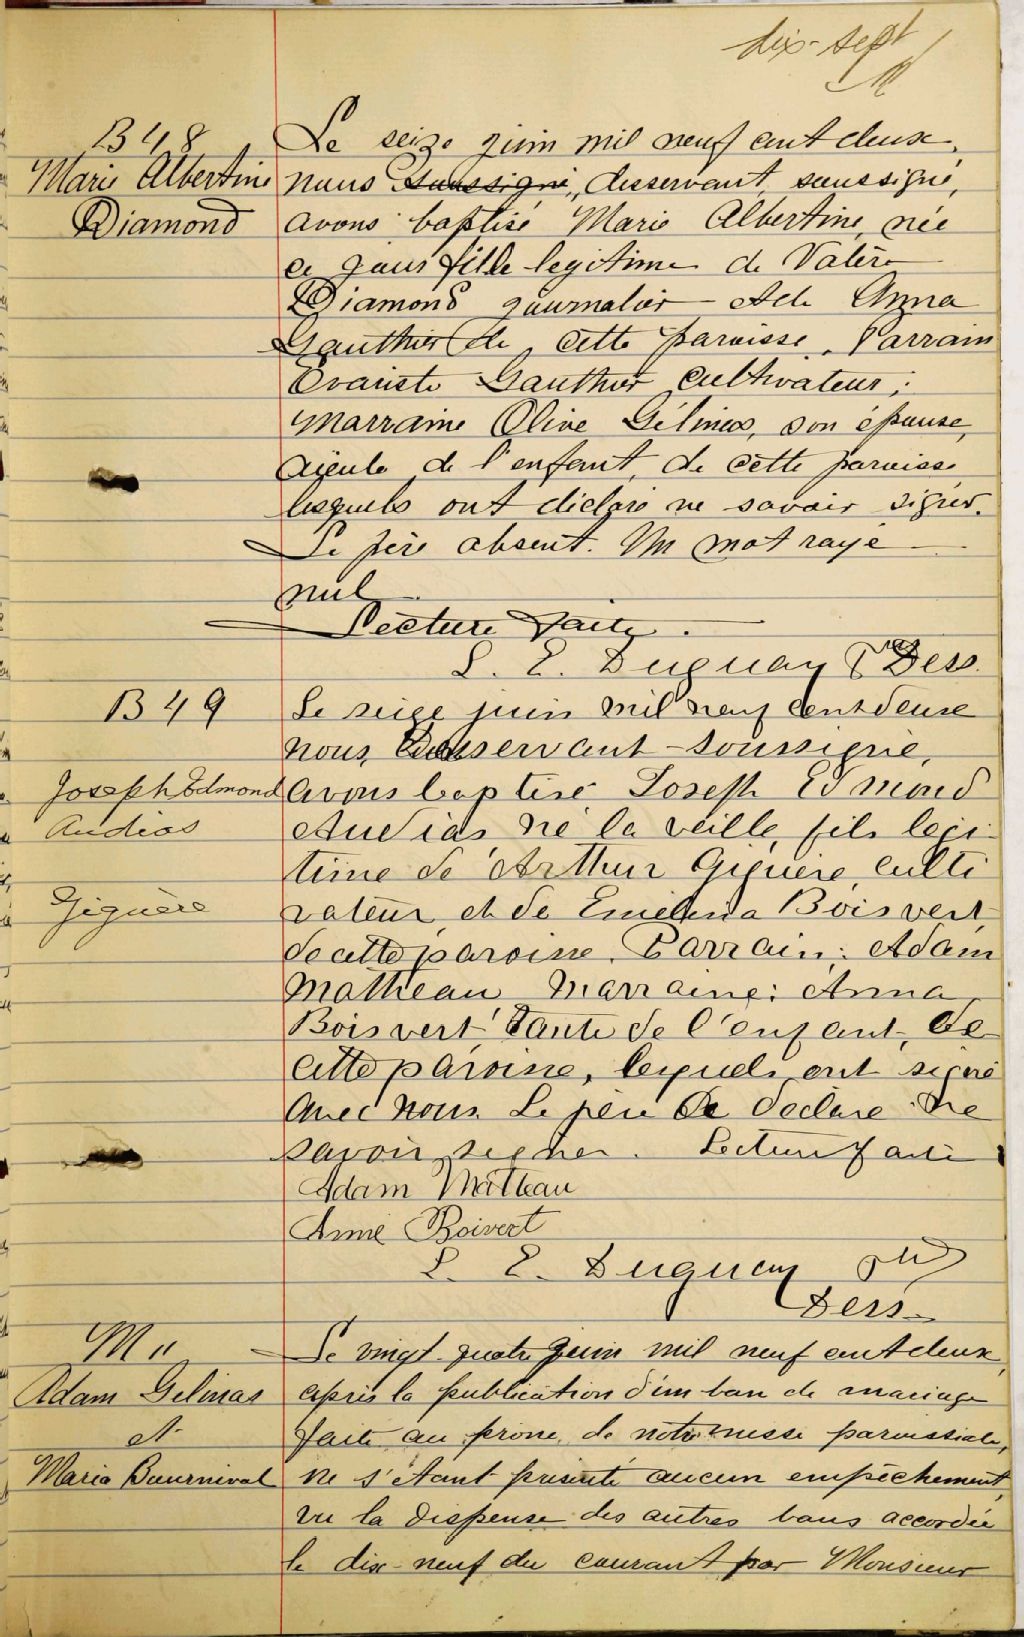 dix-sept
B 48
Marie Albertine
Diamond
Le seize juin mil neuf cent deux,
nous soussigné, desservant, soussigné,
avons baptisé Marie Albertine, née
ce jour fille legitime de Valère
Diamond journalier et de Anna
Gauthier de cette paroisse. Parrain
Evariste Gauthier cultivateur;
marraine Olive Gélinas, son épouse,
aieule de l'enfant, de cette paroisse
lesquels ont déclaré ne savoir signer.
Le père absent. Un mot rayé
nul.
Lecture faite.
L. E. Duguay Ptre Dess.
B 49
Joseph Edmond
Audias
Giguère
Le seize juin mil neuf cent deux
nous, desservant-soussigné,
avons baptisé Joseph Edmond
Audias né la veille, fils legi-
time de Arthur Giguère culti
vateur et de Emélina Boisvert
de cette paroisse. Parrain: Adam
Matteau Marraine: Anna
Boisvert tante de l'enfant, de
cette paroisse, lesquels ont signé
avec nous. Le père a déclaré ne
savoir signer. Lecture faite
Adam Matteau
Annie Boivert
L. E. Duguay Ptre
Dess.
M 11
Adam Gelinas
et
Maria Bournival
Le vingt-quatre juin mil neuf cent deux,
après la publication d'un ban de mariage
faite au prône de notre messe paroissiale,
ne s'étant présenté aucun empêchement,
vu la dispense des autres bans accordée
le dix-neuf du courant par Monsieur